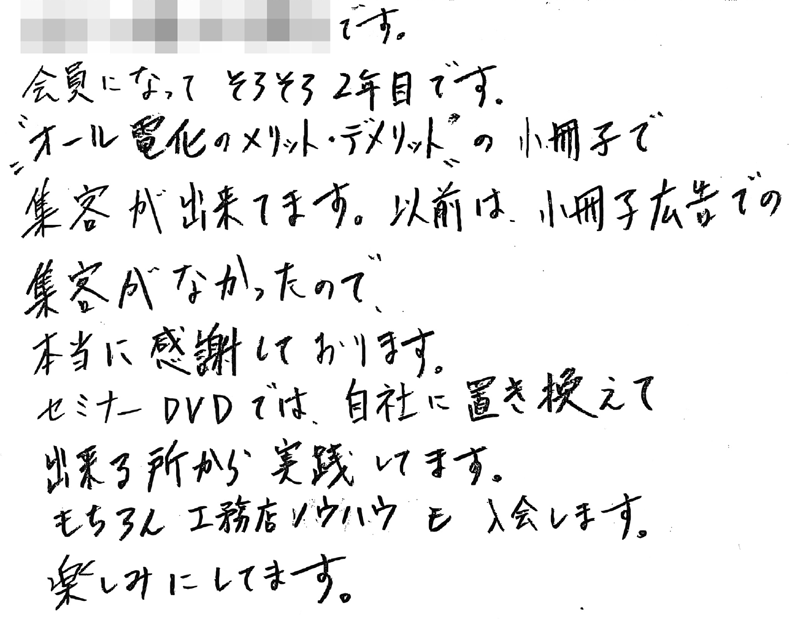 です。
会員になって そろそろ 2年目です。
〝オール電化のメリット・デメリット〟の 小冊子で
集客が出来てます。以前は、小冊子広告での
集客がなかったので、
本当に感謝しております。
セミナーDVDでは、自社に置き換えて
出来る所から 実践してます。
もちろん 工務店ノウハウ も 入会します。
楽しみにしてます。